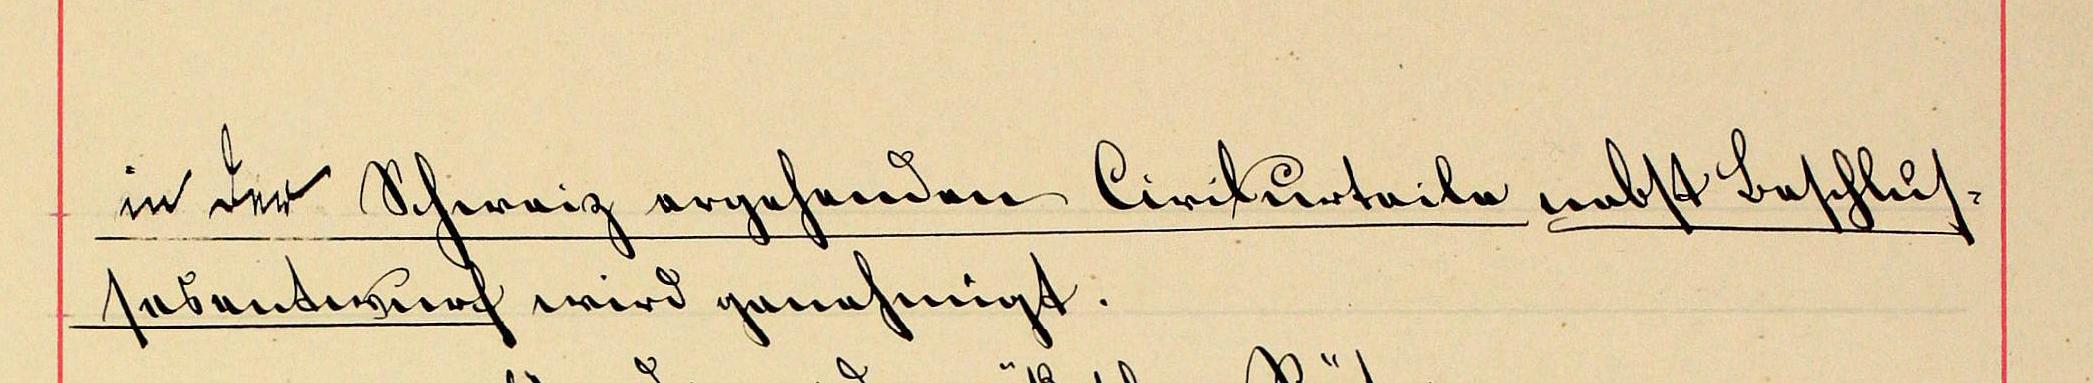 in der Schweiz ergehenden Civilurteile nebst Beschlus-
sesentwurf wird genehmigt.